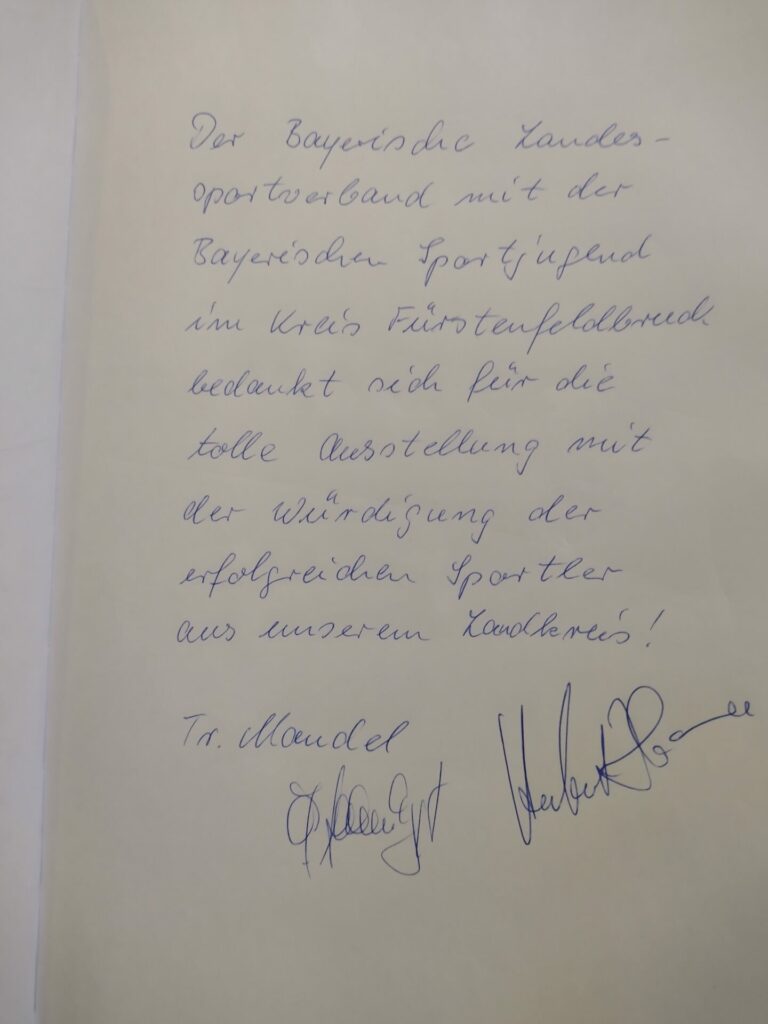 Der Bayerische Landes-
sportverband mit der
Bayerischen Sportjugend
im Kreis Fürstenfeldbruck
bedankt sich für die
tolle Ausstellung mit
der Würdigung der
erfolgreichen Sportler
aus unserem Landkreis!
Tr. Mandel